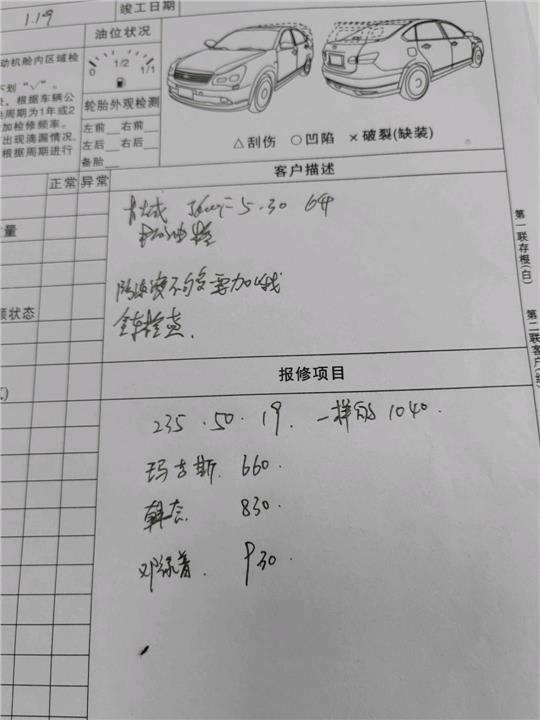 1.19
竣工日期
动机舱内区域检
油位状况
下划“√”。
根据车辆公
0 1/2 1/1
换周期为1年或2
加检修频率。
轮胎外观检测
出现滴漏情况,
左前 右前
根据周期进行
左后 右后
备胎
△刮伤 ○凹陷 ×破裂(缺装)
正常 异常
客户描述
5.30
量
第一联存根(白)
防冻液不够要加
须状态
全车检查.
第二联客户
报修项目
235.50.19. 一样的 1040.
玛吉斯. 660.
韩泰 830.
邓禄普. 930.